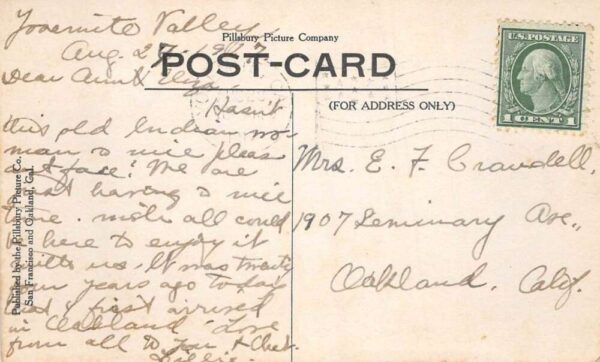 Yosemite Valley
Aug. 27 - 1917
Dear Aunt Eliza,
Hasn't
this old Indian wo-
man a nice pleas
ant face! We are
just having a nice
time. Wish all could
be here to enjoy it
with us. It was twenty
years ago today
that I first arrived
in Oakland. Love
from all to you &
Lillie.
Pillsbury Picture Company
POST-CARD
(FOR ADDRESS ONLY)
U.S. POSTAGE
1 CENT 1
Mrs. E. F. Crandell,
1907 Seminary Ave.,
Oakland, Calif.
Published by the Pillsbury Picture Co.
San Francisco and Oakland, Cal.